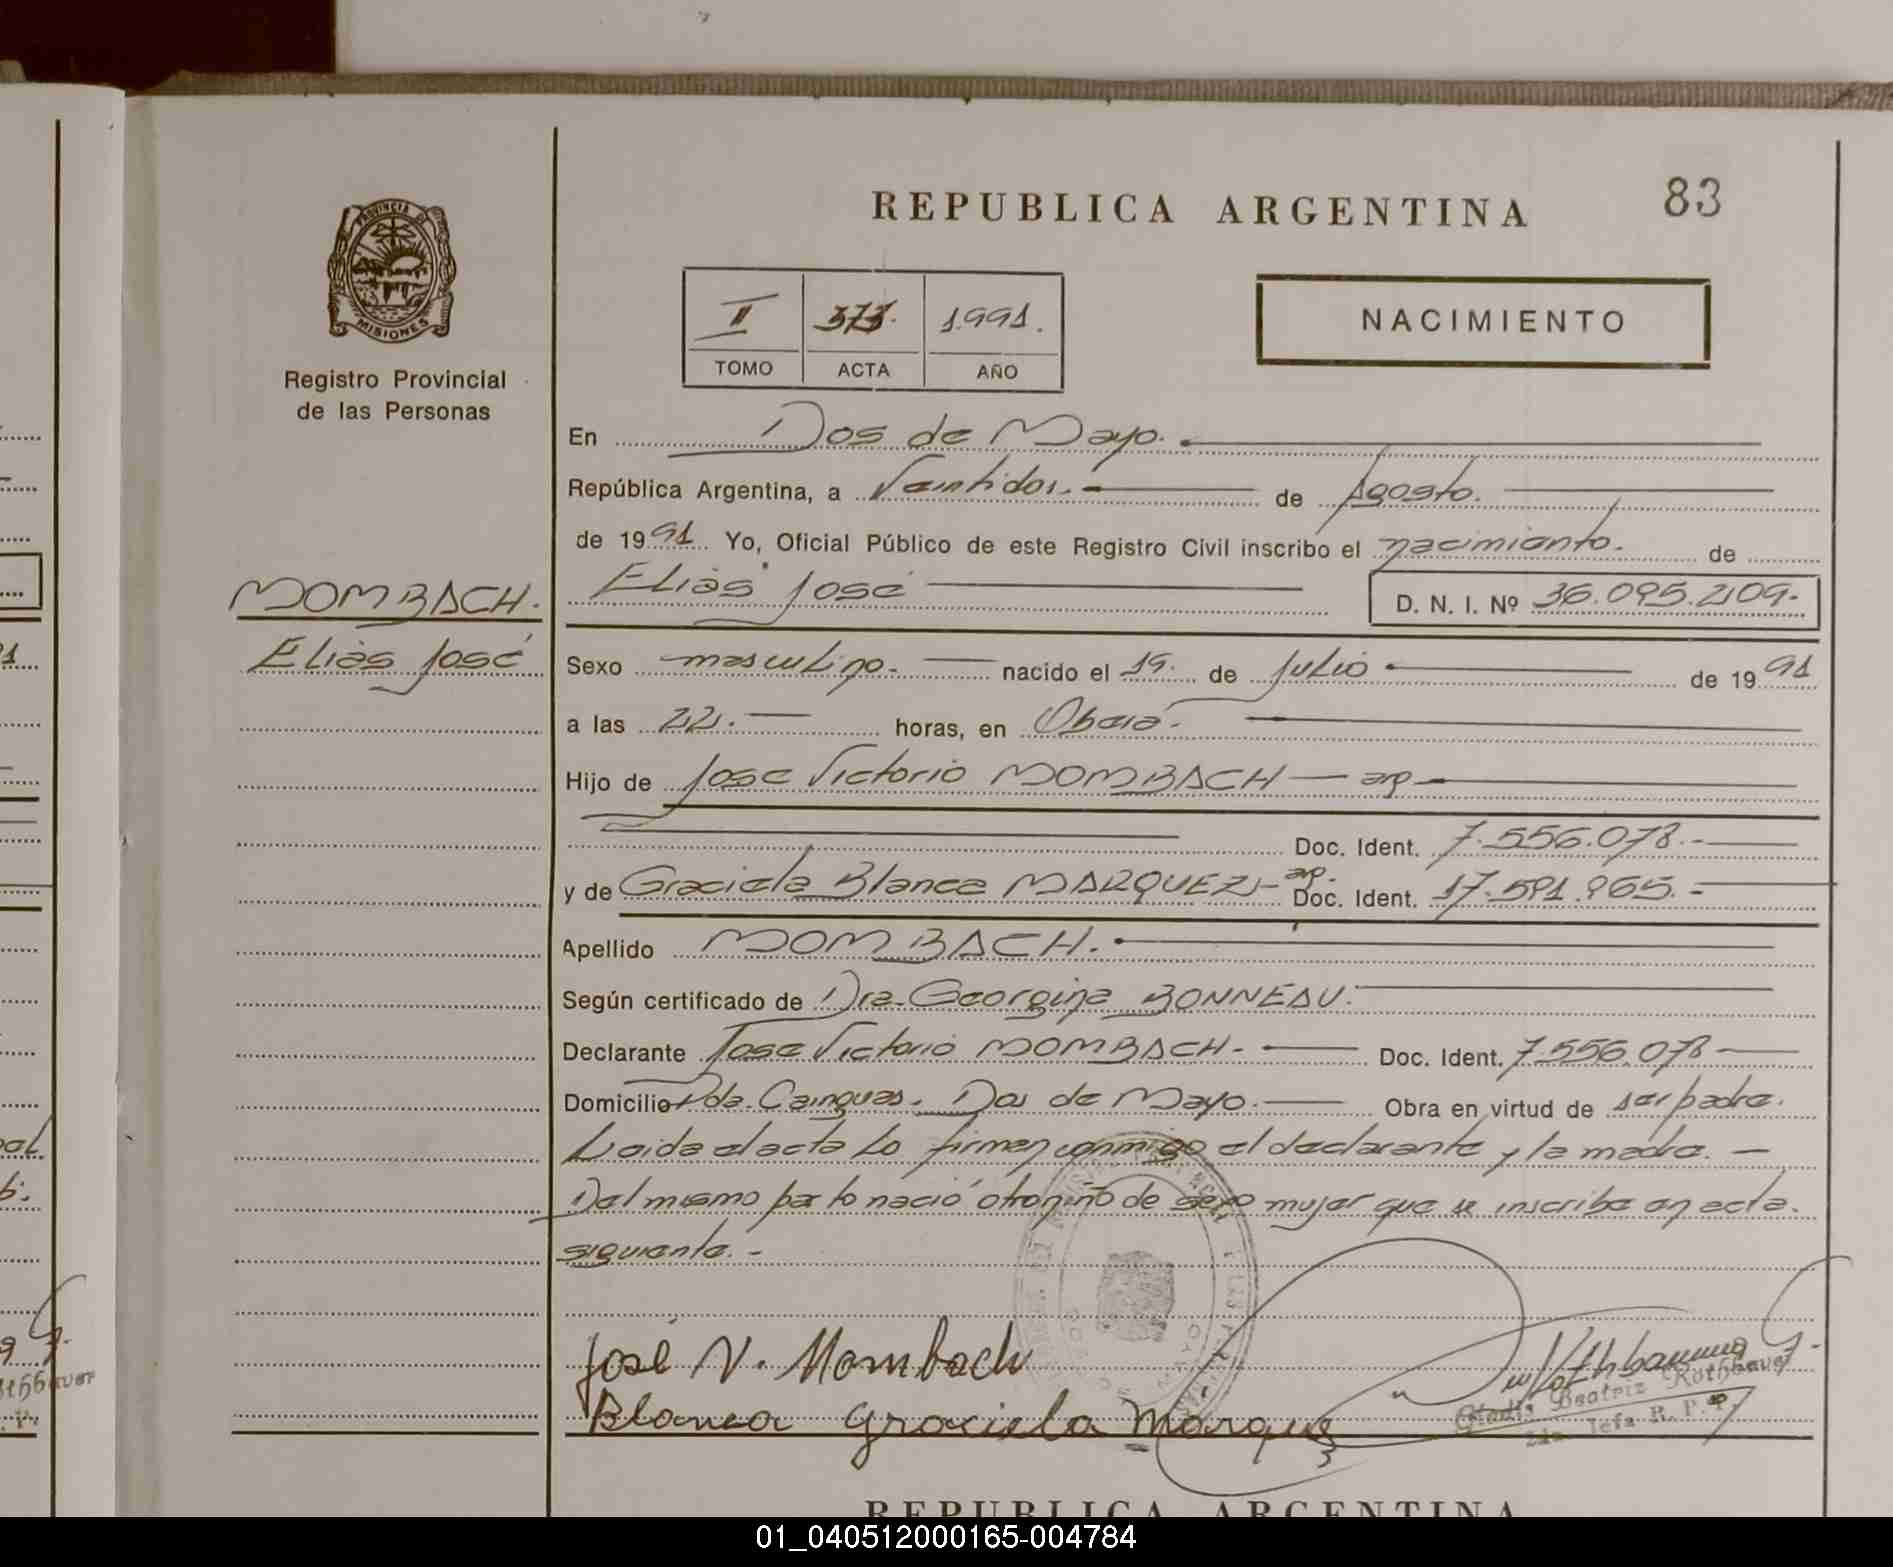 REPUBLICA ARGENTINA
83
PROVINCIA DE
MISIONES
Registro Provincial
de las Personas
II 373. 1.991.
TOMO ACTA AÑO
NACIMIENTO
En Dos de Mayo.
República Argentina, a Veintidos. de Agosto.
de 1991 Yo, Oficial Público de este Registro Civil inscribo el nacimiento. de
Elias José D. N. I. Nº 36.095.209.-
MOMBACH.
Elias José
Sexo masculino. nacido el 19. de Julio de 1991
a las 22. horas, en Oberá.
Hijo de Jose Victorio MOMBACH arg.
Doc. Ident. 7.556.078.-
y de Graciela Blanca MARQUEZ - arg. Doc. Ident. 17.591.965.-
Apellido MOMBACH.
Según certificado de Dra. Georgina BONNEAU.
Declarante Jose Victorio MOMBACH. Doc. Ident. 7.556.078
Domicilio Pda. Cainguas. Dos de Mayo. Obra en virtud de ser padre.
Leida el acta lo firman conmigo el declarante y la madre.
Del mismo parto nació otro niño de sexo mujer que se inscribe en acta
siguiente.-
José V. Mombach
Blanca Graciela Marquez
Gladis Beatriz Rothbauer
2da Jefa R. P. P.
REPUBLICA ARGENTINA
01_040512000165-004784